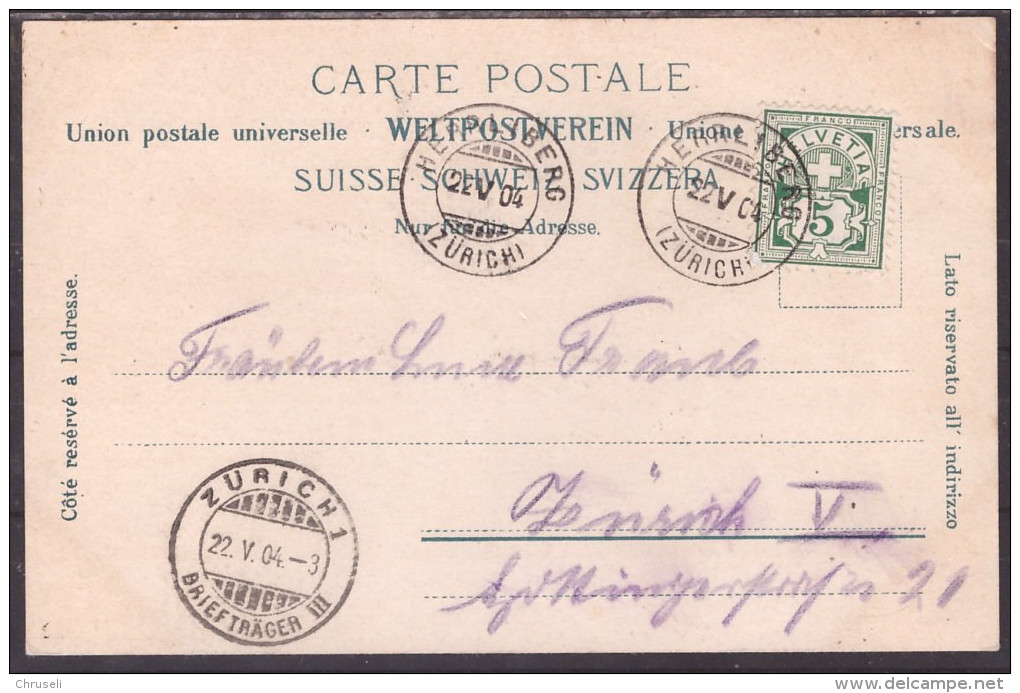 CARTE POSTALE
Union postale universelle · WELTPOSTVEREIN · Unione ersale.
SUISSE SCHWEIZ SVIZZERA
Nur für die Adresse.
HERRLIBERG
22 V 04
(ZÜRICH)
HERRLIBERG
22 V 04
(ZÜRICH)
FRANCO
HELVETIA
FRANCO
FRANCO
5
Côté resérvé à l'adresse.
Lato riservato all' indirizzo
Fräulein Frank
Zürich V
21
ZÜRICH 1
22. V. 04.–3
BRIEFTRÄGER III
© Chruseli
www.delcampe.net